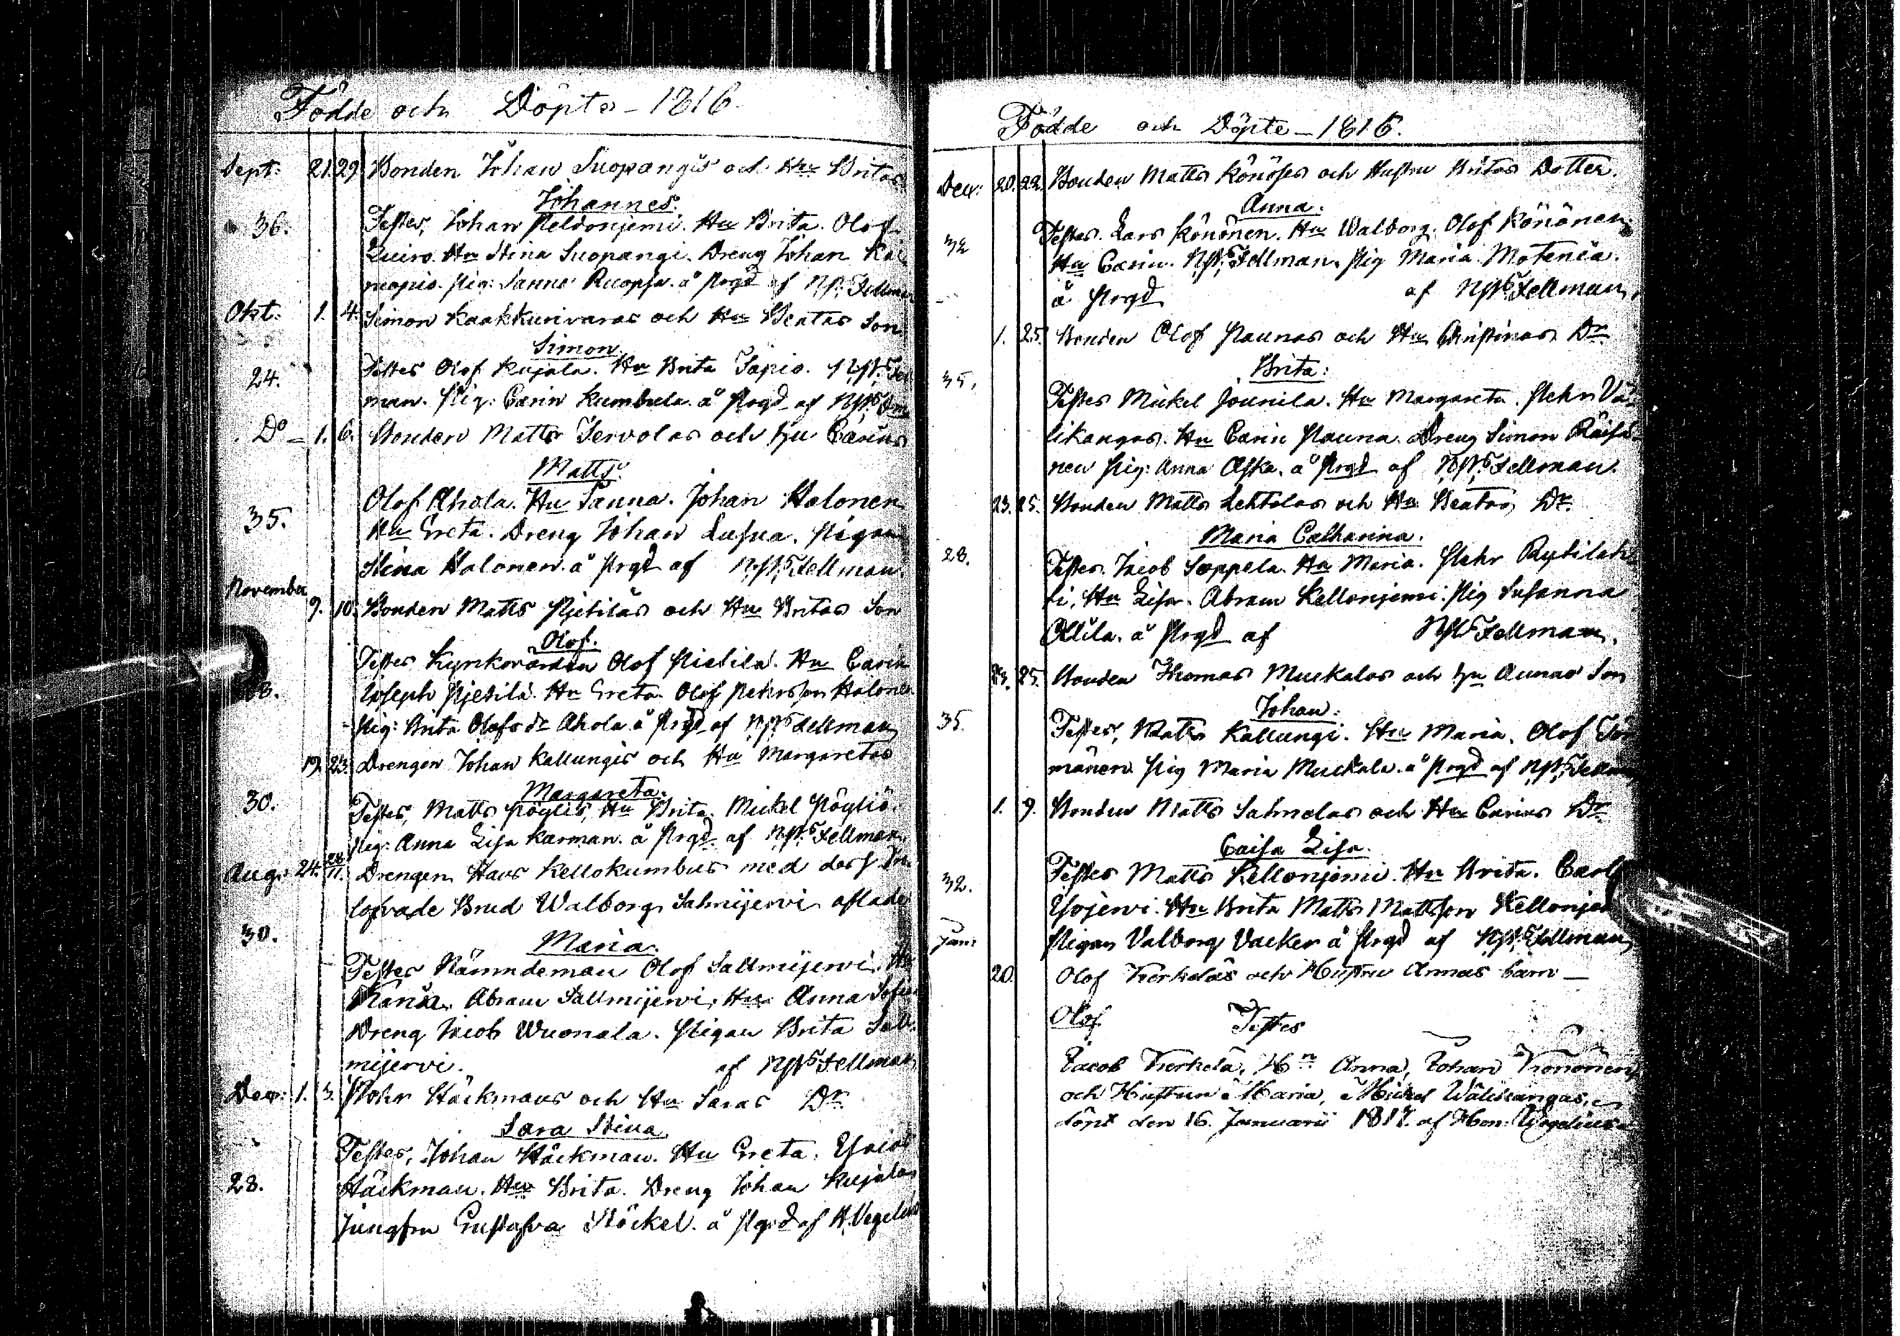 Födde och Döpte - 1816.
Sept. 21. 29. Bonden Johan Suopangis och Hu Britas
Johannes.
36. Testes, Johan Peldonjemi. Hu Brita. Olof
Hu Stina Suopangi. Dreng Johan
Pig: Sanna Ruopsa. å Prgd af NP: Fellman
Okt. 1. 4. Simon Kaakkurivaras och Hu Beatas Son
Simon.
24. Testes Olof Kujala. Hu Brita Sapio.
man. Pig: Carin Kumbula. å Prgd af
Do 1. 6. Bonden Matts Tervolas och Hu Carins
Matts.
Olof Ahola. Hu Sanna. Johan Halonen
35. Hu Greta. Dreng Johan Lusua. Pigan
Stina Halonen. å Prgd af NPs Fellman.
November 9. 10. Bonden Matts Pietiläs och Hu Britas Son
Olof.
Testes Kyrkovärden Olof Pietilä. Hu Carin
28. Joseph Pietilä. Hu Greta. Olof Pehrsson Halonen
Pig: Brita Olofsdr Ahola. å Prgd af NPs Fellman
19. 23. Drengen Johan Kallungis och Hu Margaretas
Margareta.
30. Testes, Matts Pöyliö, Hu Brita. Mickel Pöyliö.
Pig: Anna Lisa Karman. å Prgd af NPs Fellman
Aug: 24. Drengen Hans Kellokumbus med dess
lofvade Brud Walborg Salmijervi aflade
30. Maria.
Testes Nämndeman Olof Sallmijervi. Hu
Karin. Abram Sallmijervi, Hu Anna Sofia
Dreng Jacob Wuonala. Pigan Brita Sall-
mijervi. af NPs Fellman
Dec: 1. 3. Pehr Häckmans och Hu Saras Dr
Sara Stina
Testes, Johan Häckman. Hu Greta.
28. Häckman. Hu Brita. Dreng Johan Kujalas
Jungfru Gustafva Stöckel. å Prgd af H. Vegelius
Födde och Döpte - 1816.
Dec: 20. 22. Bonden Matts Könöses och Hustru Britas Dotter.
Anna.
32 Testes. Lars Könönen. Hu Walborg. Olof Könönen.
Hu Carin. NPs Fellman. Pig Maria
å Prgd af NPs Fellman
1. 25. Bonden Olof Paunas och Hu Christinas Dr
Brita:
35. Testes Mickel Jounila. Hu Margareta. Pehr Vä-
likangas. Hu Carin Pauna. Dreng Simon Räisä-
nen Pig: Anna Aska. å Prgd af NPs Fellman.
23. 25. Bonden Matts Lehtolas och Hu Beatas Dr.
Maria Catharina.
28. Testes. Jacob Seppela. Hu Maria. Pehr Rytilah-
ti, Hu Lisa. Abram Kellonjemi. Pig Susanna
Ollila. å Prgd af NPs Fellman.
25. Bonden Thomas Muskalas och Hu Annas Son
Johan:
35. Testes, Matts Kallungi. Hu Maria. Olof
mänen Pig Maria Muskala. å Prgd af NPs Fellman
1. 9. Bonden Matts Salmelas och Hu Carins Dr
Caisa Lisa.
32. Testes Matts Kellonjemi. Hu Brita. Carl
Ysojervi. Hu Brita Matts Mattsson Kellonjemi
Pigan Valborg Vacker å Prgd af NPs Fellman
Jan: 20. Olof Kerkeläs och Hustru Annas barn —
Olof Testes
Jacob Kerkelä, Hu Anna, Johan Könönen,
och Hustrun Maria, Mickel Wälikangas,
döpt den 16. Januarii 1817. af Hon. Wegelius